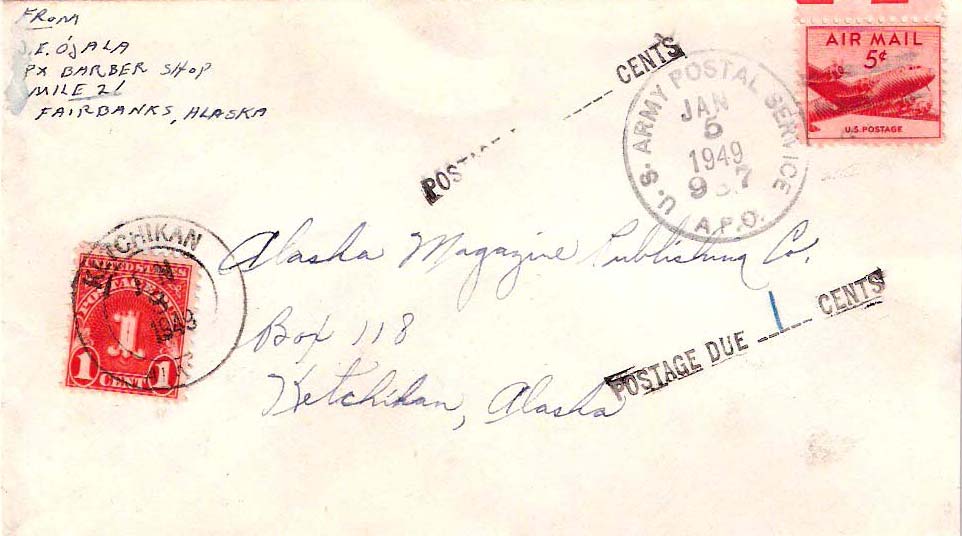 FROM
J.E. OJALA
PX BARBER SHOP
MILE 21
FAIRBANKS, ALASKA
AIR MAIL
5¢
U.S. POSTAGE
CENTS
U.S. ARMY POSTAL SERVICE
JAN
5
1949
A.P.O.
KETCHIKAN
1949
1
1 CENT 1
Alaska Magazine Publishing Co.
Box 118
Ketchikan, Alaska
POSTAGE DUE 1 CENTS